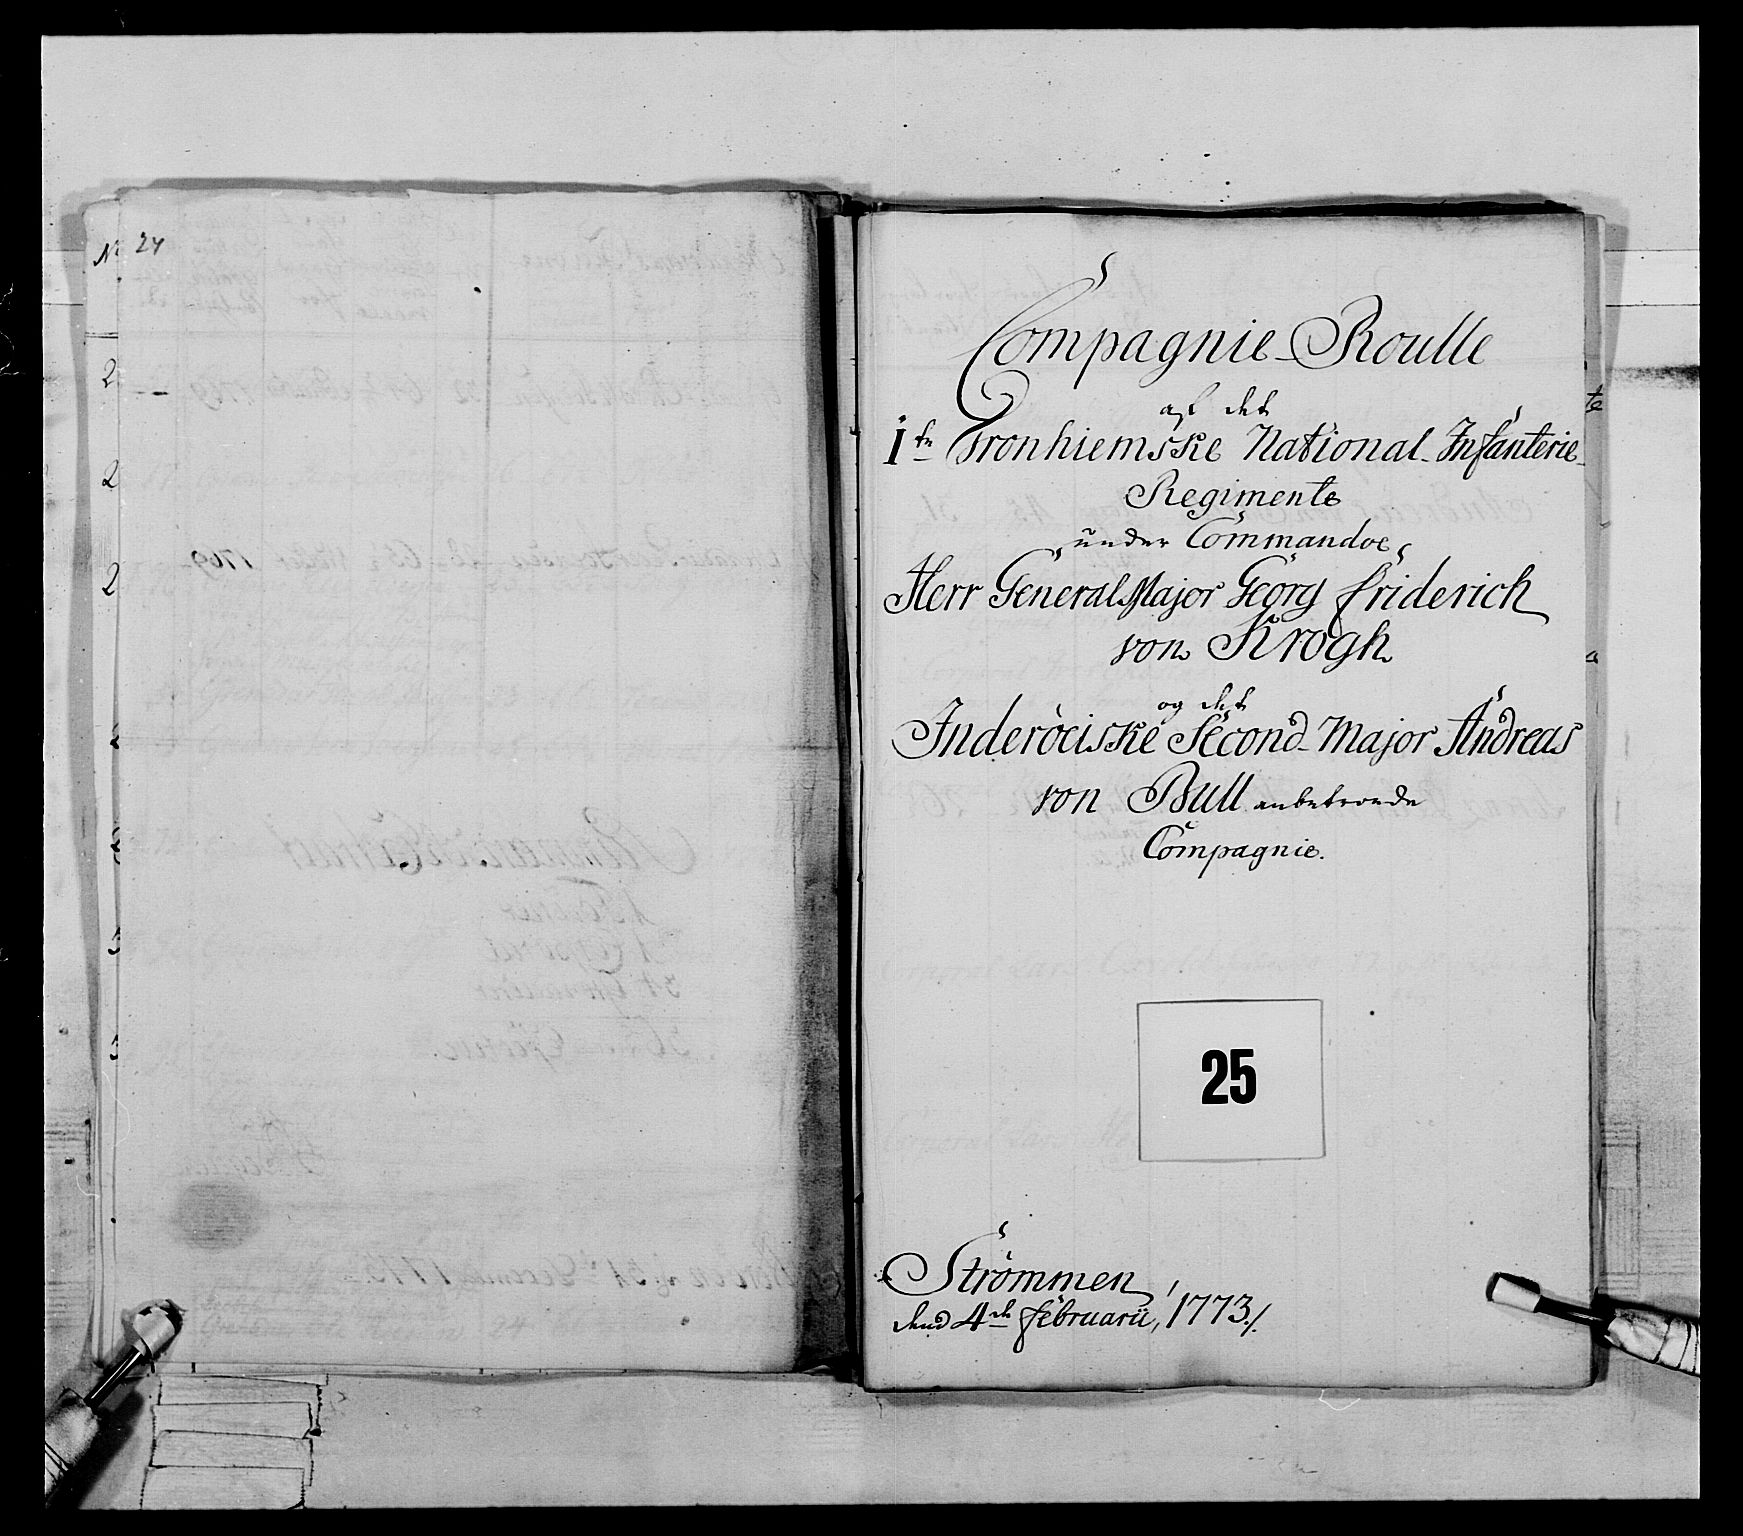 No 24
2
2
2
Compagnie-Roulle
af det
1te Tronhiemske National-Infanterie-
Regimente
under Commandoe
Herr General Major Georg friderich
von Krogh
og det
Inderöeiske Second-Major Andreas
von Bull anbetroede
Compagnie.
25
Strömmen
dend 4de februarii, 1773./.